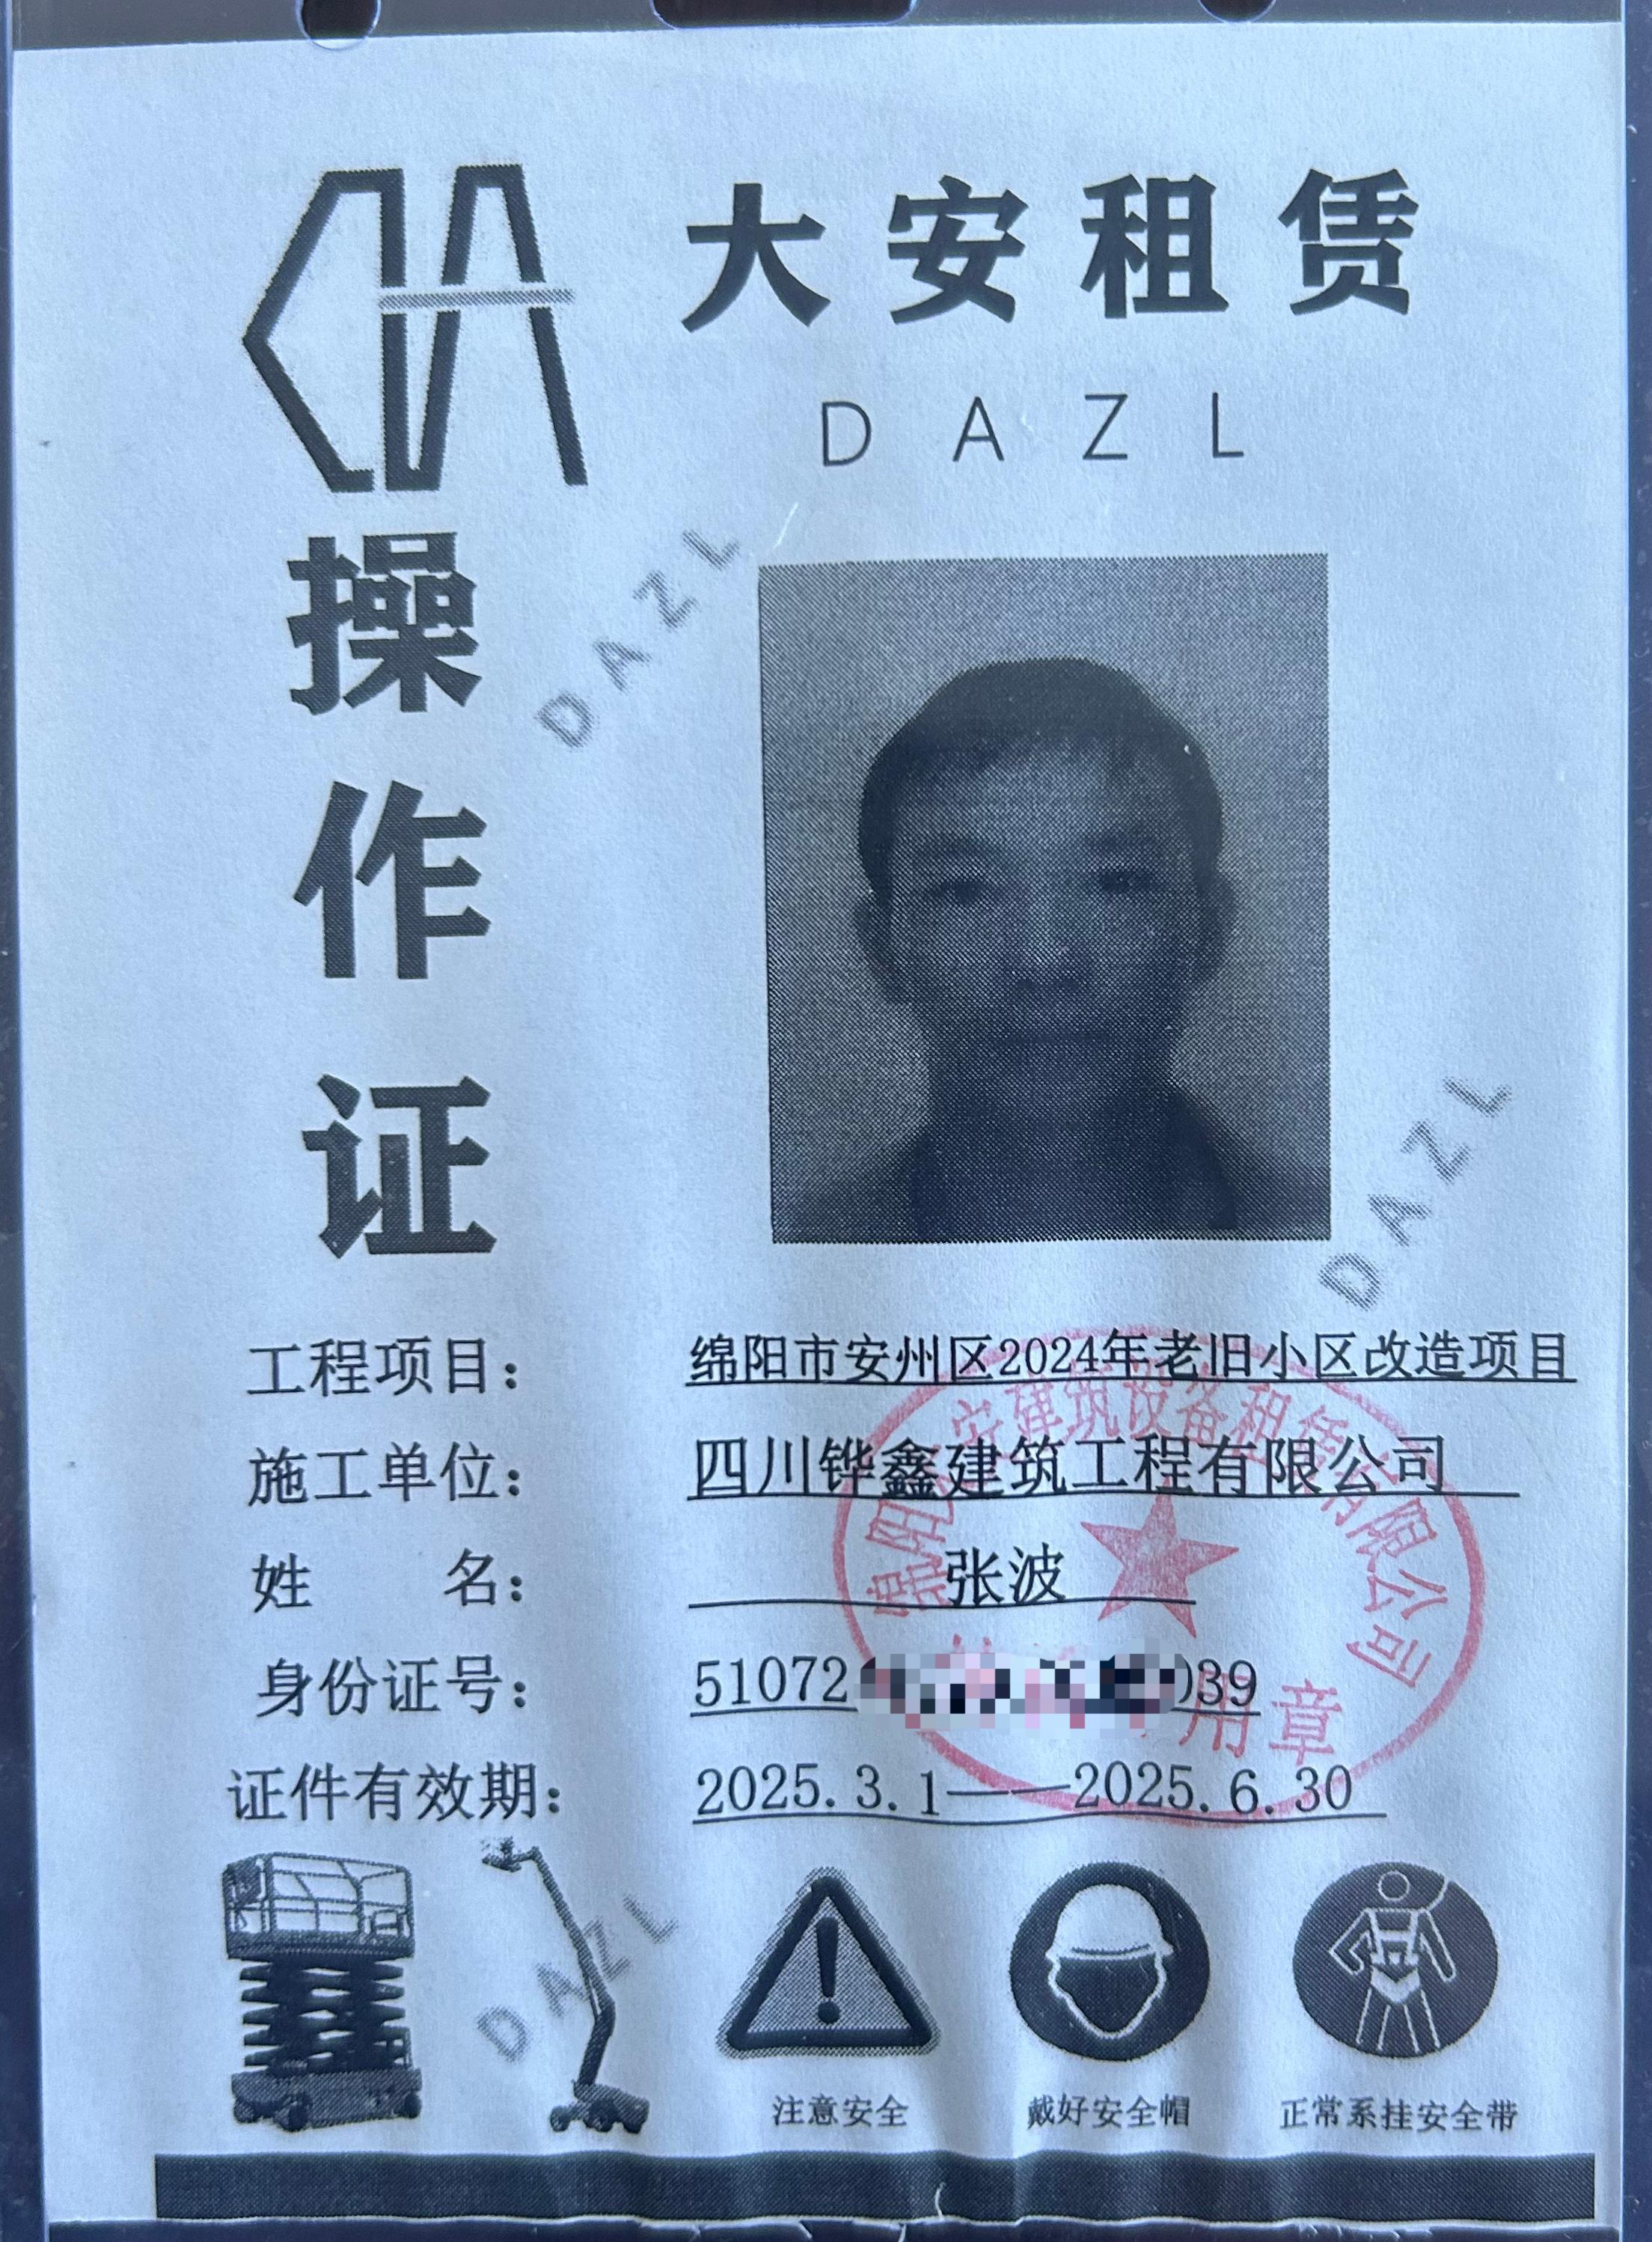 大安租赁
DAZL
操作证
DAZL
DAZL
工程项目： 绵阳市安州区2024年老旧小区改造项目
施工单位： 四川铧鑫建筑工程有限公司
姓 名： 张波
身份证号： 51072 039
证件有效期： 2025.3.1——2025.6.30
安建筑设备租赁有限公司
用章
DAZL
注意安全
戴好安全帽
正常系挂安全带